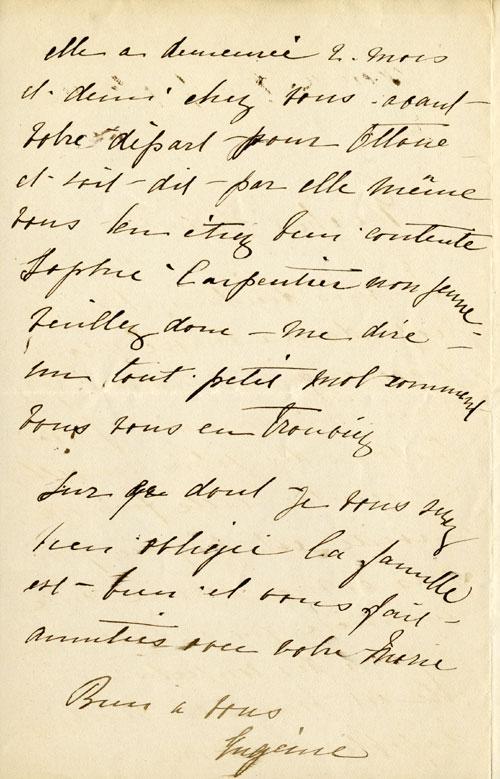 elle a demeurée 2. mois
et demi chez vous avant
votre départ pour Ottawa
et soit-dit-par elle même
vous en étiez bien contente
Sophie Carpentier non jeune
veuillez donc me dire
un tout petit mot comment
vous vous en trouviez
Sur ce dont je vous
bien obligée la famille
est bien et vous fait
amitiés avec votre Marie
Bien à vous
Eugénie